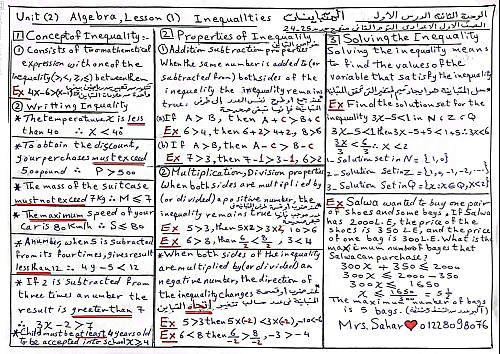 Unit (2) Algebra, Lesson (1) Inequalities المتباينات
الوحدة الثانية الدرس الأول
1 Concept of Inequality:-
① Consists of two mathematical
expression with one of the
inequality (>, <, ≥, ≤) between them
2 Writting Inquality
* The temperature x is less
than 40 ∴ X < 40°
* To obtain the discount,
your purchases must exceed
500 pound ∴ P > 500
* The mass of the suitcase
must not exceed 7Kg ∴ M ≤ 7
* The maximum speed of your
car is 80 Km/h ∴ S ≤ 80
* A number when 5 is subtracted
from its four times, gives result
less than 12 ∴ 4y - 5 < 12
* If 2 is subtracted from
three times a number the
result is greater than 7
∴ 3X - 2 > 7
* Child must be at least 4 years old
to be accepted into school X ≥ 4
2 Properties of Inequality
① Addition subtraction properties
When the same number is added to (or
subtracted from) both sides of the
inequality the inequality remains
true
(a) If A > B, then A + C > B + C
Ex 6 > 4, then 6+2 > 4+2, 8 > 6
(b) If A > B, then A - C > B - C
Ex 7 > 3, then 7-1 > 3-1, 6 > 2
② Multiplication, Division properties
When both sides are multiplied by
(or divided) a positive number, the
inequality remains true
Ex 5 > 3, then 5x2 > 3x2, 10 > 6
Ex 6 < 8, then 6/2 < 8/2, 3 < 4
* When both sides of the inequality
are multiplied by (or divided) an
negative number, the direction of
the inequality changes
Ex 5 > 3 then 5x(-2) < 3x(-2), -10 < -6
Ex 6 < 8 then 6/-2 > 8/-2, -3 > -4
3 Solving the Inequality
Solving the inequality means
to find the values of the
variable that satisfy the inequality
Ex Find the solution set for the
inequality 3X-5<1 in N, Z, Q
3X-5<1 then 3X-5+5<1+5 ∴ 3X<6
3X/3 < 6/3 ∴ X < 2
1- Solution set in N = {1, 0}
2- Solution set in Z = {1, 0, -1, -2, ...}
3- Solution set in Q = {x: x ∈ Q, X<2}
Ex Salwa wanted to buy one pair
of shoes and some bags, If Salwa
has 2000 LE, the price of the
shoes is 350 LE, and the price
of one bag is 300 LE. What is the
maximum number of bages that
Salwa can purchase?
300X + 350 ≤ 2000
300X ≤ 2000 - 350
300X ≤ 1650
The maximum number of bags
is 5 bags.
Mrs. Sahar ❤ 01228098076